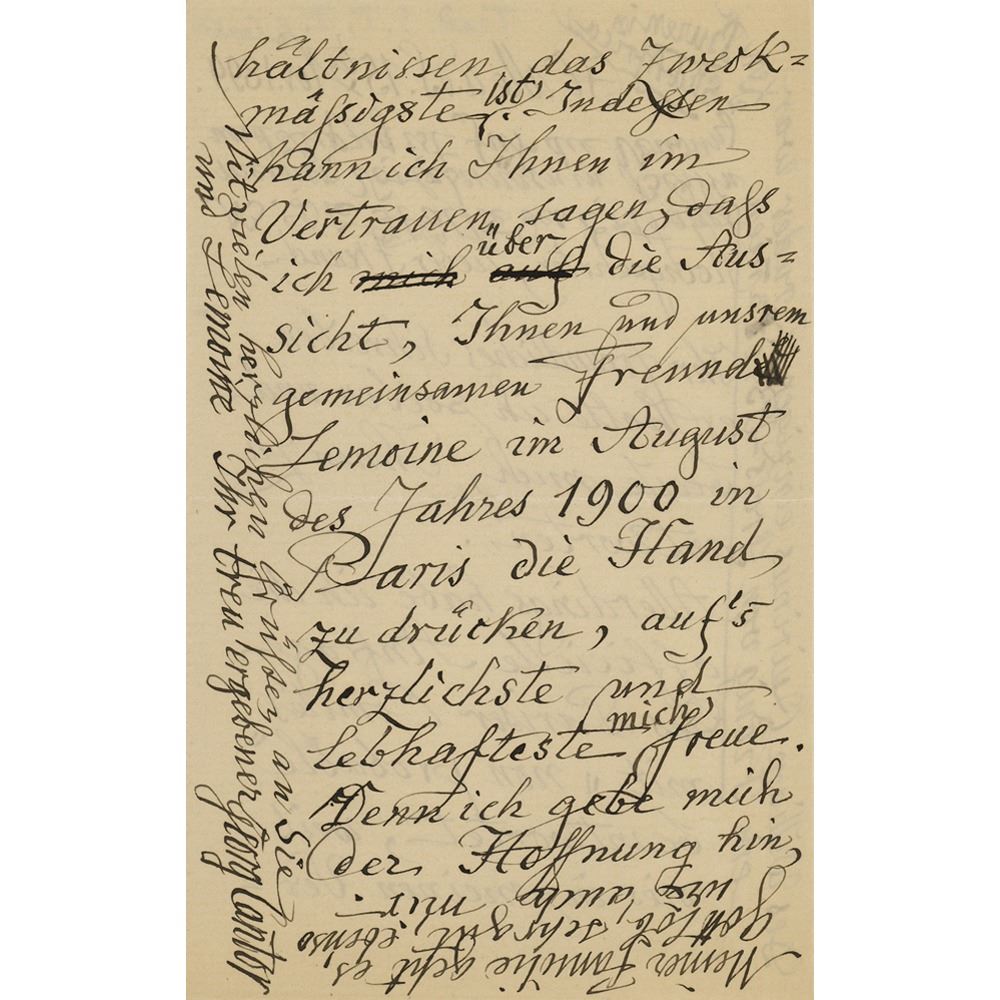 hältnissen das Zweck=
mäßigste ist. Indessen
kann ich Ihnen im
Vertrauen sagen, daß
ich mich auf über die Aus=
sicht, Ihnen und unsrem
gemeinsamen Freund
Lemoine im August
des Jahres 1900 in
Paris die Hand
zu drücken, auf's
herzlichste und
lebhafteste mich freue.
Denn ich gebe mich
der Hoffnung hin,
Meiner Familie geht es
gottlob sehr gut, ebenso
wie auch mir.
Mit vielen herzlichen Grüßen an Sie
und Lemoine Ihr treu ergebener Georg Cantor